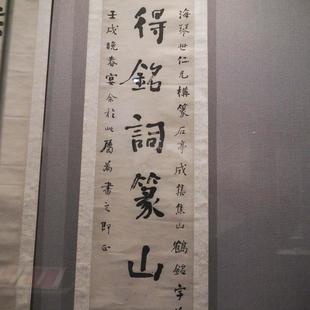 海琴世仁兄構篆石亭成集焦山鶴銘字
得銘詞篆山
壬戌晚春宴余於此屬為書之即正